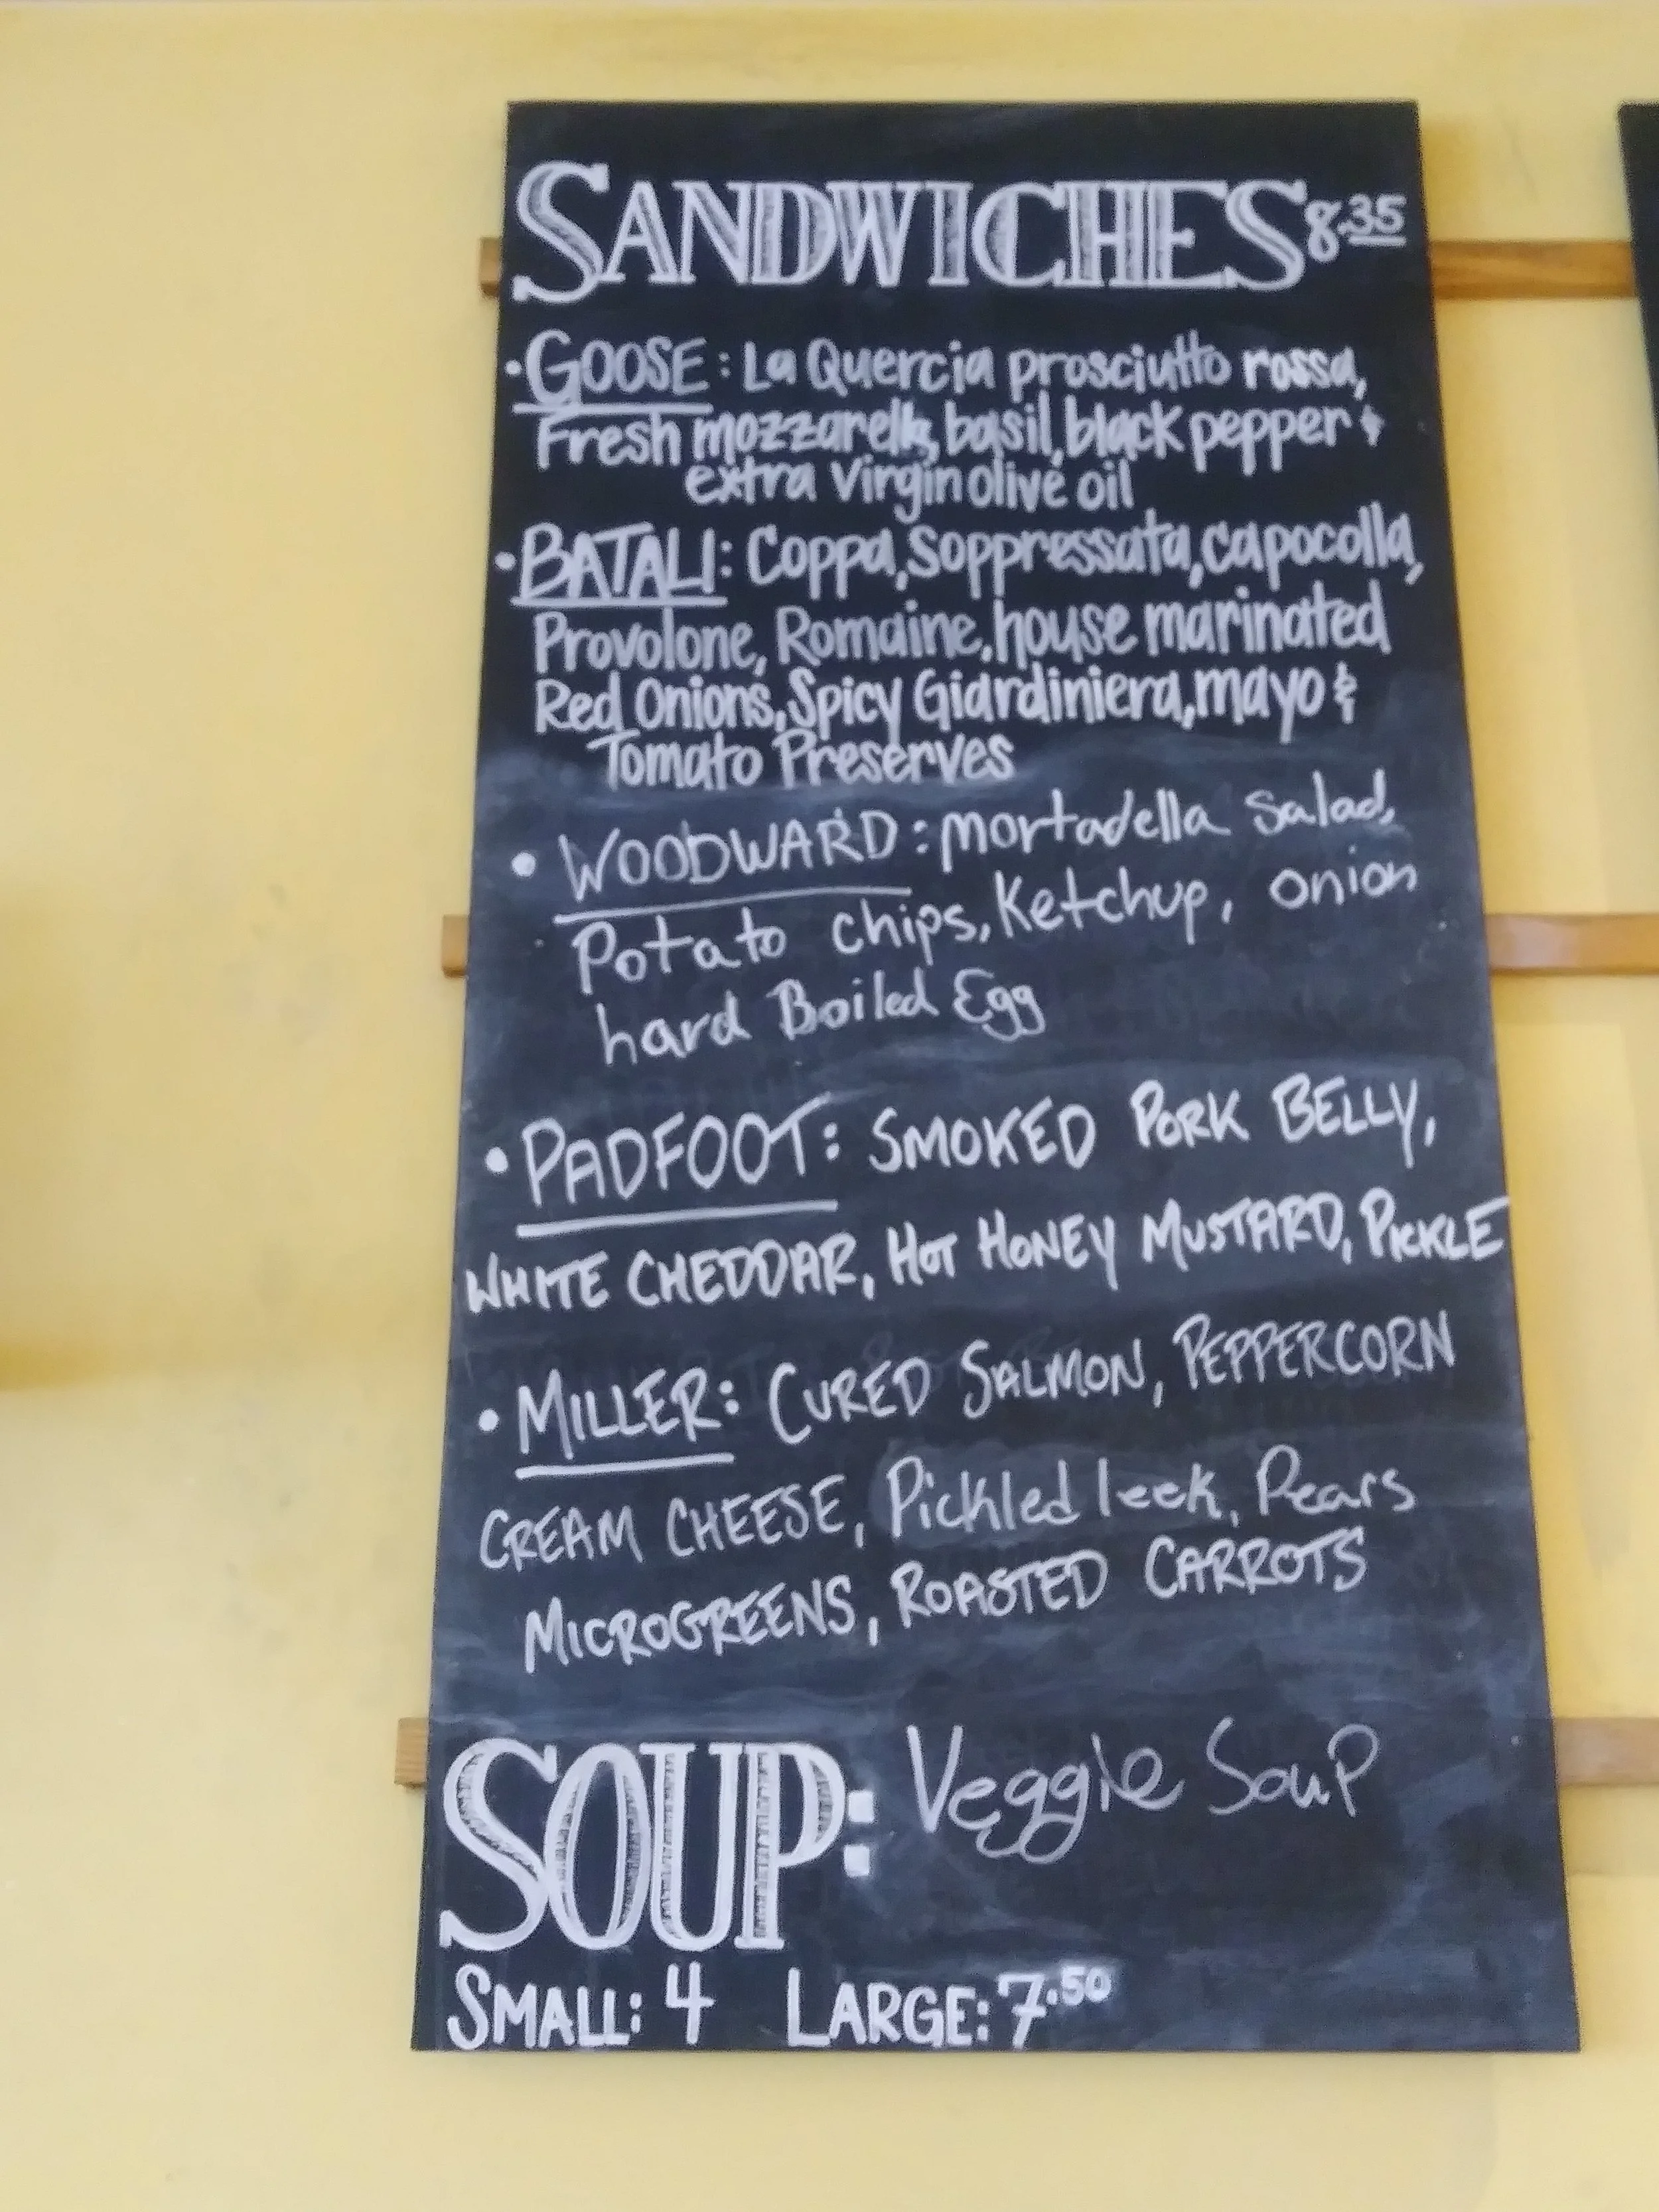 SANDWICHES 8.35
• GOOSE: La Quercia prosciutto rossa,
Fresh mozzarella, basil, black pepper &
extra virgin olive oil
• BATALI: Coppa, Soppressata, capocolla,
Provolone, Romaine, house marinated
Red Onions, Spicy Giardiniera, mayo &
Tomato Preserves
• WOODWARD: mortadella Salad,
Potato chips, Ketchup, onion
hard Boiled Egg
• PADFOOT: SMOKED PORK BELLY,
WHITE CHEDDAR, HOT HONEY MUSTARD, PICKLE
• MILLER: CURED SALMON, PEPPERCORN
CREAM CHEESE, Pickled leek, Pears
MICROGREENS, ROASTED CARROTS
SOUP: Veggie Soup
SMALL: 4 LARGE: 7.50